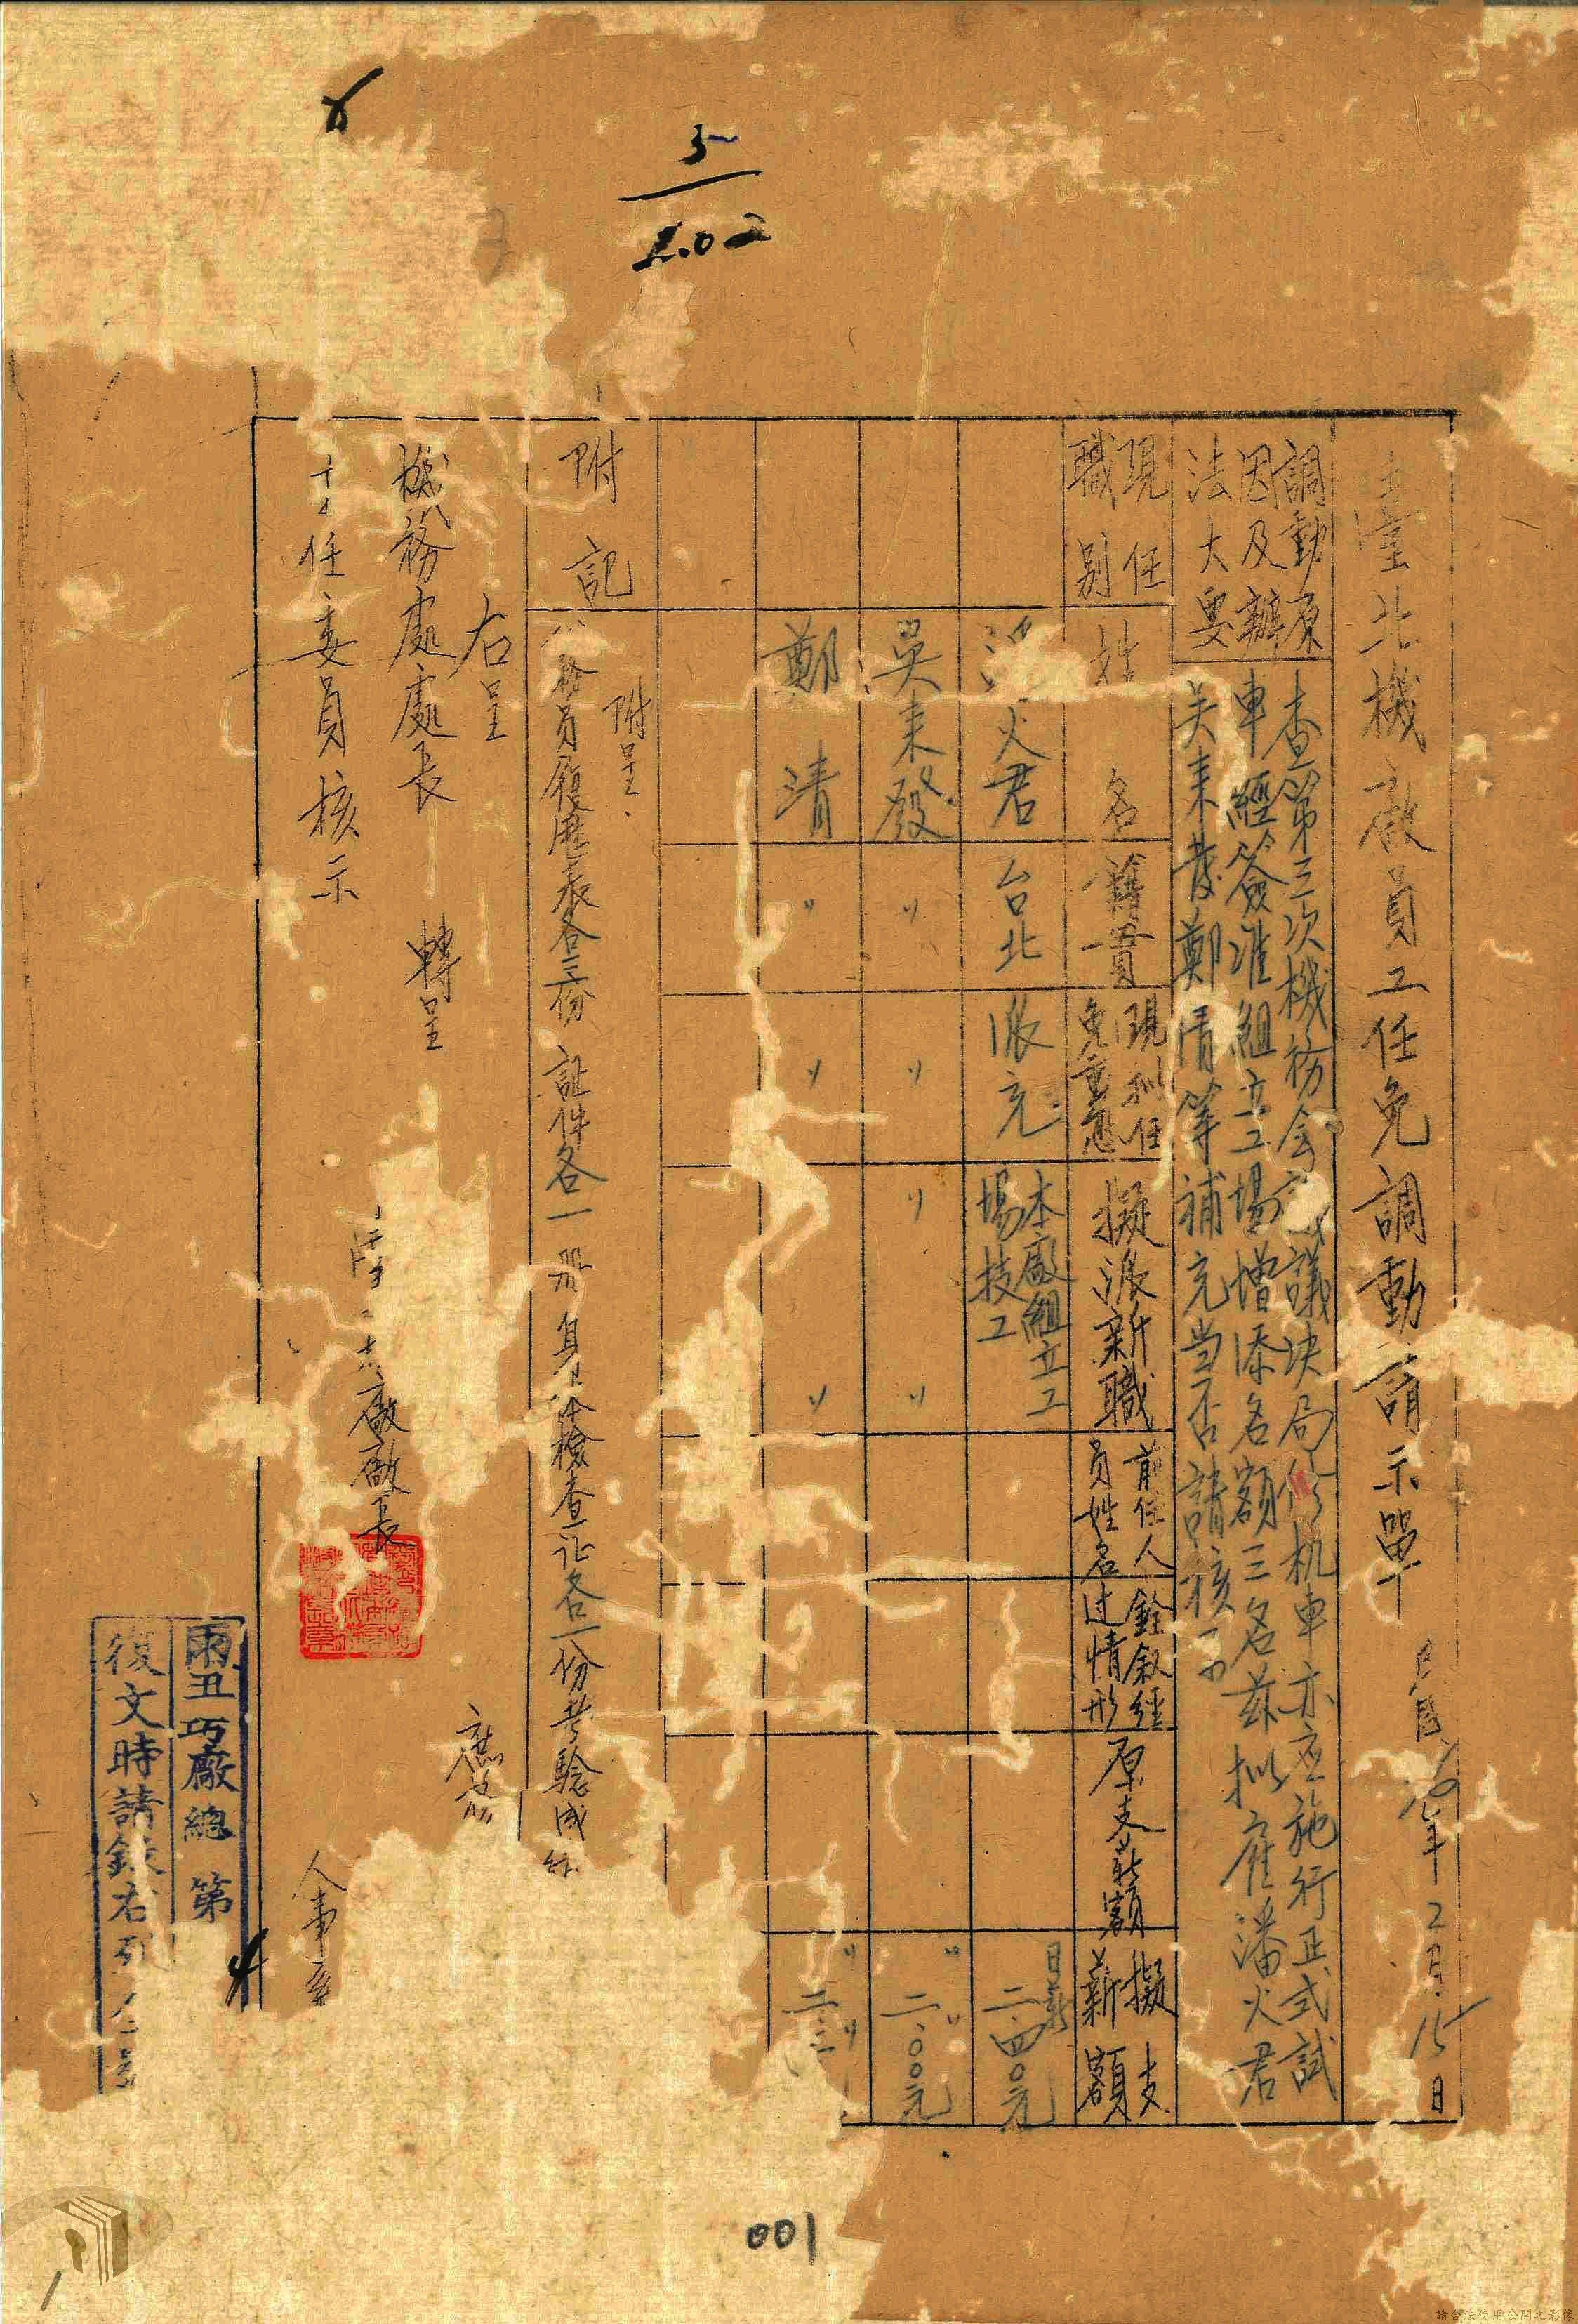 5
1.02
臺北機廠員工任免調動請示單
年2月15日
調動原
因及辦
法大要
查第三次機務会議決局修机車亦应施行正式試
車經簽准組立工場增添名額三名茲拟雇潘火君
吴来發鄭清等補充当否請核示
現任
職別
姓名
籍貫
現拟任
免
擬派新職
前任人
員姓名
銓叙經
过情形
原支薪額
擬支
薪額
火君
台北
派充
本廠組立工
場技工
日薪
二.四〇元
吳来發
〃
〃
〃
〃
〃
〃
二.〇〇元
鄭清
〃
〃
〃
〃
〃
附記
附呈.
員履歷表各三份 証件各一册 身体檢查証各一份考驗成
右呈
機務處處長 轉呈
主任委員核示
廠廠長
人事
丑巧廠總 第
復文時請錄右列
001
請合法使用公開之影像